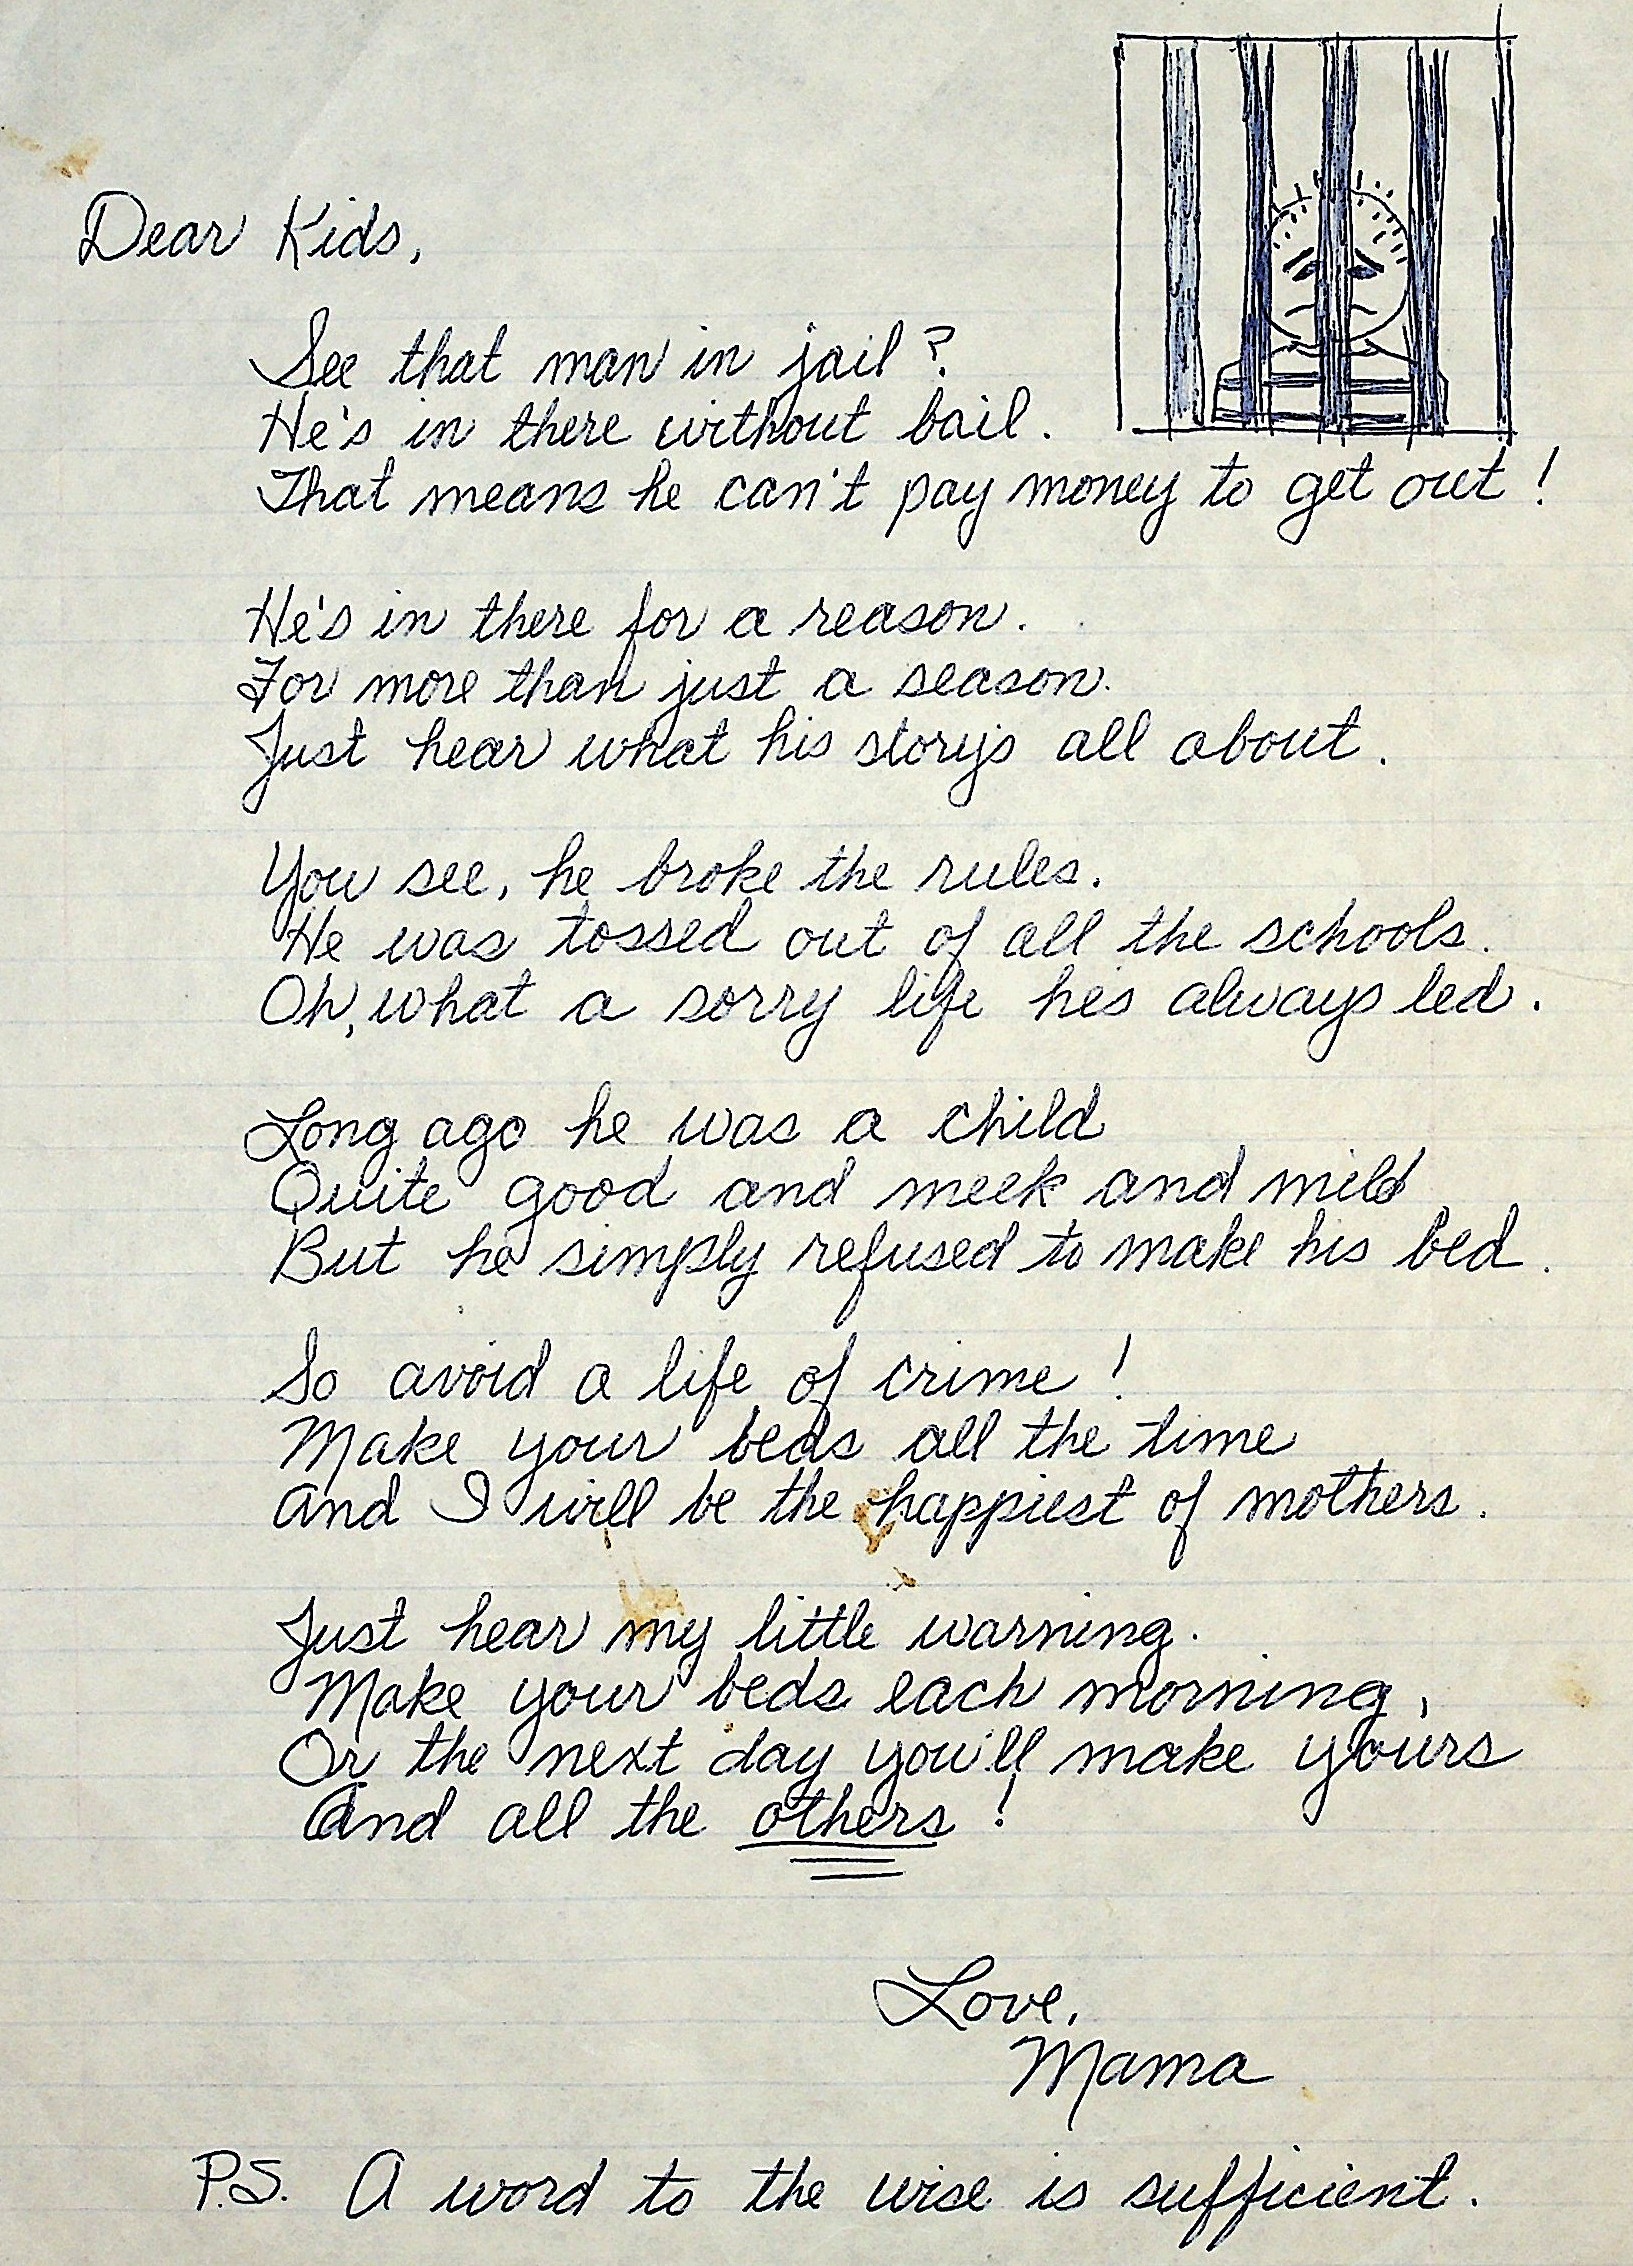 Dear Kids,
See that man in jail?
He's in there without bail.
That means he can't pay money to get out!
He's in there for a reason.
For more than just a season.
Just hear what his story's all about.
You see, he broke the rules.
He was tossed out of all the schools.
Oh, what a sorry life he's always led.
Long ago he was a child
Quite good and meek and mild
But he simply refused to make his bed.
So avoid a life of crime!
Make your beds all the time
And I will be the happiest of mothers.
Just hear my little warning.
Make your beds each morning,
Or the next day you'll make yours
And all the others!
Love,
Mama
P.S. A word to the wise is sufficient.